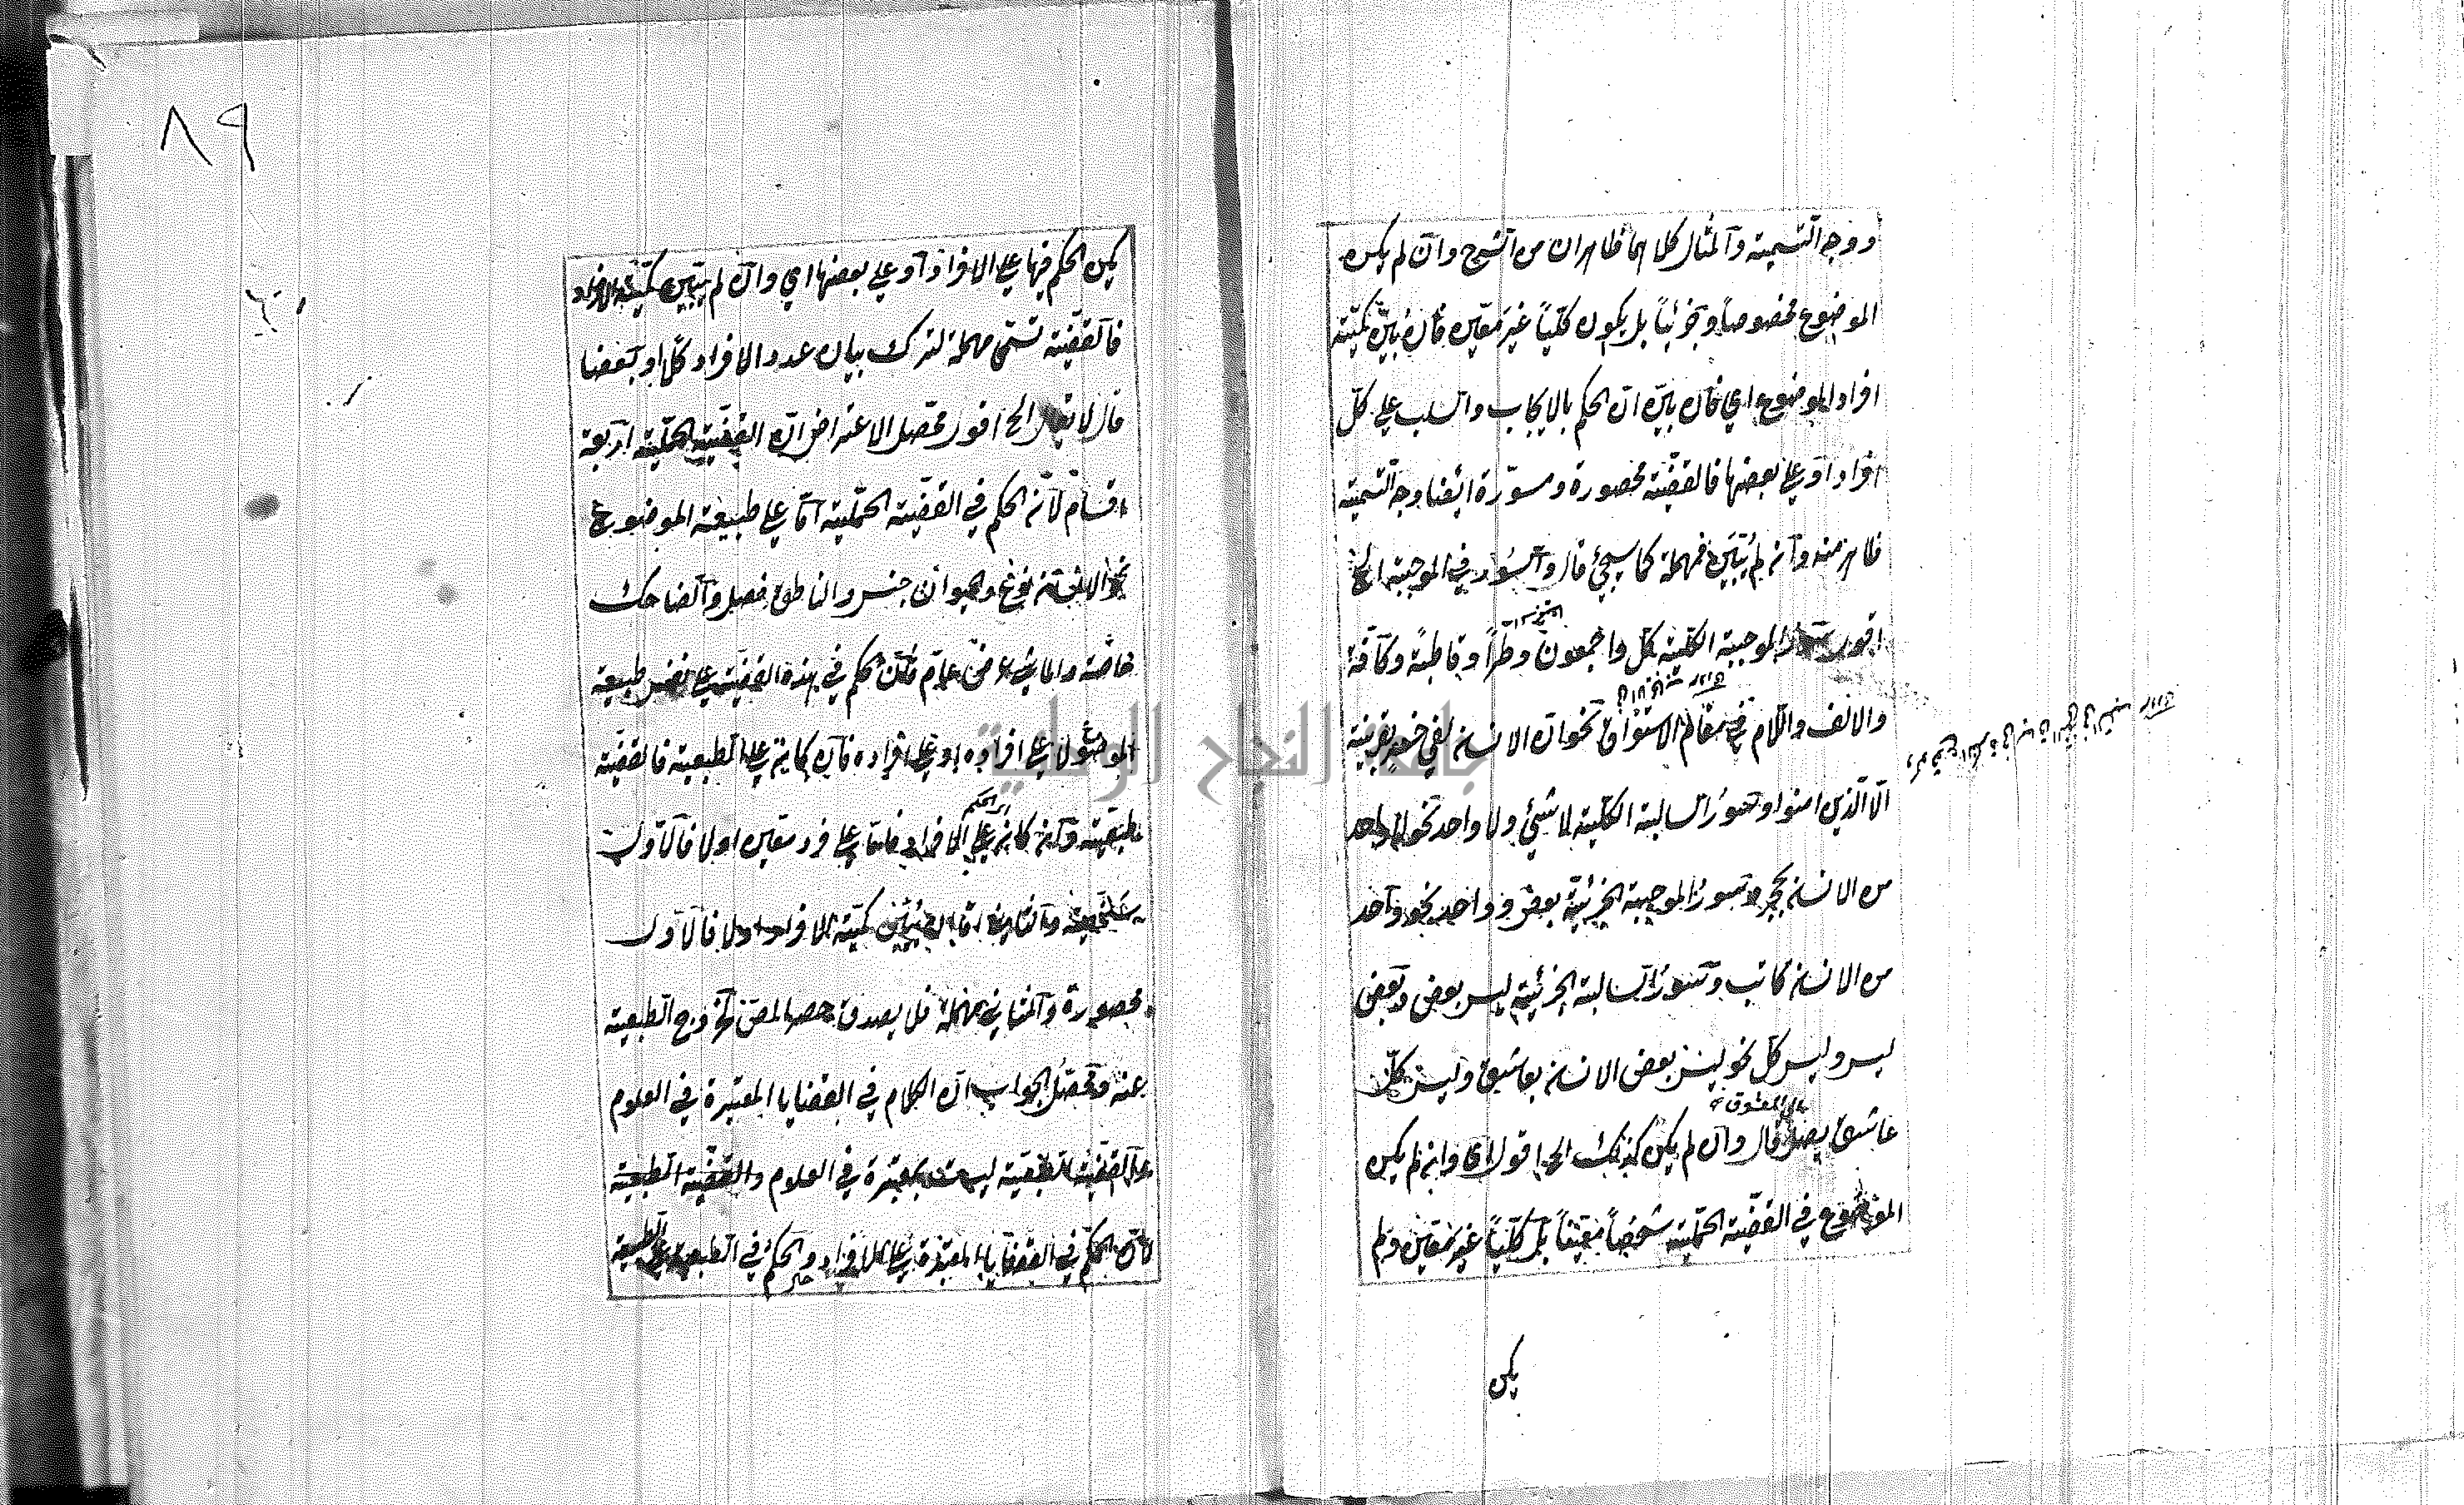 ووجه التسمية والمثال كلاهما ظاهران من الشرح وان لم يكن
الموضوع مخصوصاً وجزئياً بل يكون كلّياً غير معيّن فان بيّن كمّية
افراد الموضوع اي فان بيّن ان الحكم بالايجاب والسلب على كلّ
افراد او على بعضها فالقضيّة محصورة ومسوّرة ايضا وجه التسمية
ظاهر منه وان لم يتبيّن فمهملة كما سيجئ قال والسور في الموجبة الخ
اقول سور الموجبة الكلّية كلّ واجمعون وطرّاً وقاطبة وكآفّة
والالف واللام في مقام الاستغراق نحو ان الانسان لفي خسر بقرينة
الّا الّذين امنوا وسور السالبة الكلّية لا شئ ولا واحد نحو لا واحد
من الانسان بحجر وسور الموجبة الجزئيّة بعض وواحد نحو واحد
من الانسان كاتب وسور السالبة الجزئيّة ليس بعض وبعض
ليس وليس كلّ نحو ليس بعض الانسان بعاشق وليس كلّ
الى المعشوق
عاشق يصل قال وان لم يكن كذلك الخ اقول اي وان لم يكن
الموضوع في القضيّة الحمليّة شخصاً معيّناً بل كلّياً غير معيّن ولم
يكن
٨٩
يكن الحكم فيها على الافراد او على بعضها اي وان لم يتبيّن كمّية الافراد
فالقضيّة تسمّى مهملة لترك بيان عدد الافراد كلّا او بعضا
قال لا يقال الخ اقول محصّل الاعتراض ان القضيّة الحمليّة اربعة
اقسام لانّه الحكم في القضيّة الحمليّة امّا على طبيعة الموضوع
نحو الانسان نوع والحيوان جنس والناطق فصل والضاحك
خاصّة والماشي عرض عامّ فان الحكم في هذه القضيّة على نفس طبيعة
الموضوع لا على افراده او على افراده فان كان على الطبيعية فالقضيّة
اي الحكم
طبيعيّة وان كان على الافراد فامّا على فرد معيّن اولا فالاوّل
شخصيّة والثاني امّا ان يبيّن كمّية الافراد اولا فالاوّل
محصورة والثاني مهملة فلا يصدق حصر المص لخروج الطبيعية
عنه ومحصّل الجواب ان الكلام في القضايا المعتبرة في العلوم
والقضيّة الطبيعيّة ليست بمعتبرة في العلوم والقضيّة الطبيعية
لانّ الحكم في القضايا المعتبرة على الافراد والحكم في الطبيعية على الطبيعة
جامعة النجاح الوطنية